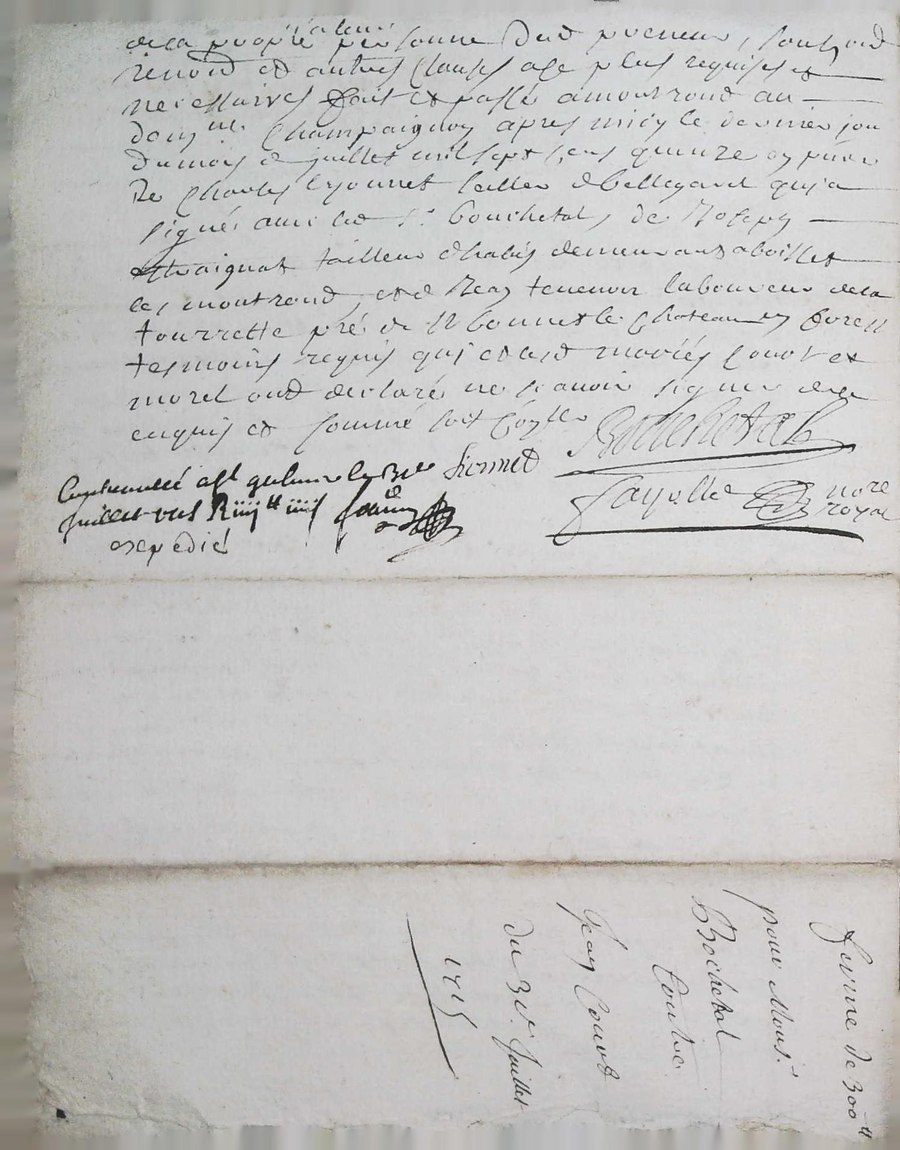 de la propre personne dud preneur, soubz
renond et autres clauses a ce plus requises et
necessaires fait et passé a montrond au
Champaignon apres midy le dernier jou
du mois de juillet mil sept cens quinze en
De Charles lyonnet de bellegard qui a
signé avec led Sr bouchetal, de
tailleur dhabis demeurant a boisset
les montrond, et de tenenoir laboureur de la
tourrette pré de St bonnet le Chateau en forest
tesmoins requis qui et led mariés couot et
morel ont declaré ne scavoir signer de ce
enquis et sommé
Bochetal
lionnet
Fayolle nore
royal
Controullé a st galmier le 31e
juillet
expedié
ferme de 300 lt
pour Monsr
Bochetal
Contre
Jean Couot
du 31e Juillet
1715